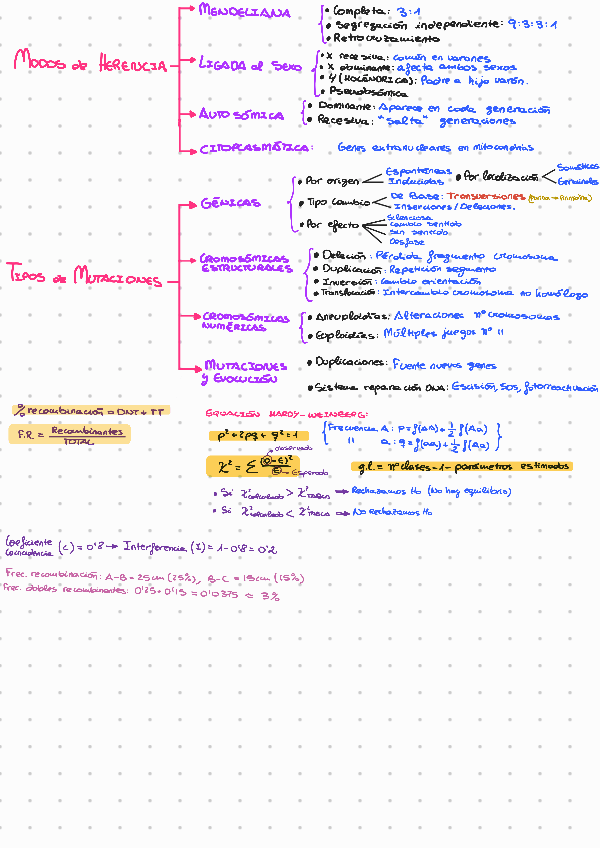 MODOS de HERENCIA
MENDELIANA
• Completa: 3:1
• Segregación independiente: 9:3:3:1
• Retrocruzamiento
LIGADA al SEXO
• X recesiva: común en varones
• X dominante: afecta ambos sexos
• Y (HOLÁNDRICA): Padre a hijo varón.
• Pseudosómica
AUTOSÓMICA
• Dominante: Aparece en cada generación
• Recesiva: "Salta" generaciones
CITOPLASMÁTICA: Genes extranucleares en mitocondrias
TIPOS de MUTACIONES
GÉNICAS
• Por origen
Espontáneas
Inducidas
• Por localización
Somáticas
Germinales
• Tipo cambio
De Base: Transversiones
Inserciones / Deleciones.
• Por efecto
Silenciosa
Cambio sentido
Sin sentido
Desfase
CROMOSÓMICAS ESTRUCTURALES
• Deleción: Pérdida fragmento cromosoma
• Duplicación: Repetición segmento
• Inversión: Cambio orientación
• Translocación: Intercambio cromosoma no homólogo
CROMOSÓMICAS NUMÉRICAS
• Aneuploidías: Alteraciones nº cromosomas
• Euploidías: Múltiples juegos nº
MUTACIONES y EVOLUCIÓN
• Duplicaciones: Fuente nuevos genes
• Sistema reparación DNA: Escisión, SOS, fotorreactivación
% recombinación = DNT + TT
F.R. = Recombinantes / TOTAL
EQUACIÓN HARDY-WEINBERG:
p² + 2pq + q² = 1
Frecuencia A: p = f(AA) + 1/2 f(Aa)
" a: q = f(aa) + 1/2 f(Aa)
χ² = Σ (O-E)² / E
observado
Esperado
g.l. = nº clases - 1 - parámetros estimados
• Si χ² calculado > χ² TABLA → Rechazamos H₀ (No hay equilibrio)
• Si χ² calculado < χ² TABLA → No Rechazamos H₀
Coeficiente coincidencia (C) = 0'8 → Interferencia (I) = 1-0'8 = 0'2
Frec. recombinación: A-B = 25cm (25%), B-C = 15cm (15%)
Frec. dobles recombinantes: 0'25 · 0'15 = 0'0375 ≈ 3%